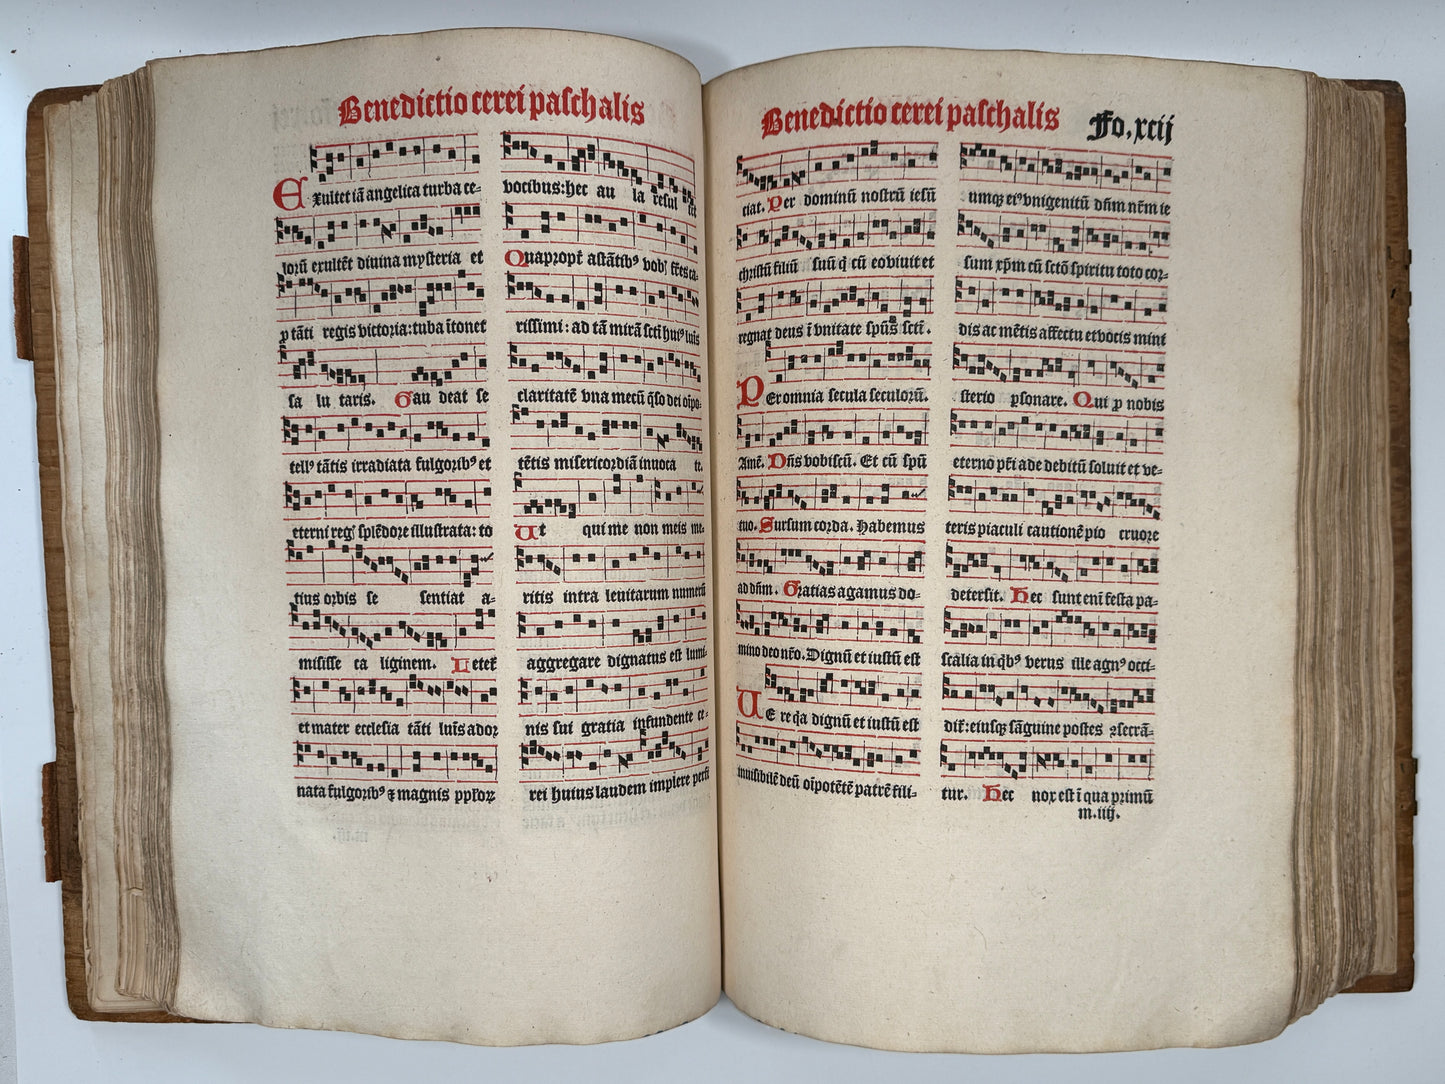 Benedictio cerei paschalis
Exultet iā angelica turba ce-
lorū exultēt diuina mysteria et
ꝓ tāti regis victoria: tuba ītonet
sa lu taris. Gau deat se
tellꝰ tātis irradiata fulgoribꝰ et
eterni regꝭ splēdore illustrata: to
tius orbis se sentiat a-
misisse ca liginem. Letet̄
et mater ecclesia tāti luīs ador
nata fulgoribꝰ ⁊ magnis pplo℞
vocibus: hec au la resul tet
Quapropt̄ astātibꝰ vobꝭ fr̄es ca-
rissimi: ad tā mirā sctī huiꝰ luīs
claritatē vna mecū q̄so dei oīpo-
tētis misericordiā inuoca te.
Ut qui me non meis me-
ritis intra leuitarum numerū
aggregare dignatus est lumi-
nis sui gratia infundente ce-
rei huius laudem implere perfi
Benedictio cerei paschalis Fo. xcij
ciat. Per dominū nostrū iesū
christū filiū suū q̄ cū eo viuit et
regnat deus ī vnitate spūs sctī.
Per omnia secula seculorū.
Amē. Dn̄s vobiscū. Et cū spū
tuo. Sursum corda. Habemus
ad dn̄m. Gratias agamus do-
mino deo nr̄o. Dignū et iustū est
Ue re q̄a dignū et iustū est
inuisibilē deū oīpotētē patrē fili-
umqꝫ eiꝰ vnigenitū dn̄m nr̄m ie
sum xp̄m cū sctō spiritu toto cor-
dis ac mētis affectu et vocis mini
sterio ꝑsonare. Qui ꝓ nobis
eterno pr̄i ade debitū soluit et ve-
teris piaculi cautionē pio cruore
detersit. Hec sunt enī festa pa-
scalia in qͥbꝰ verus ille agnꝰ occi-
dit̄: eiusqꝫ sāguine postes ꝯsecrā-
tur. Hec nox est ī qua primū
m.iiij.